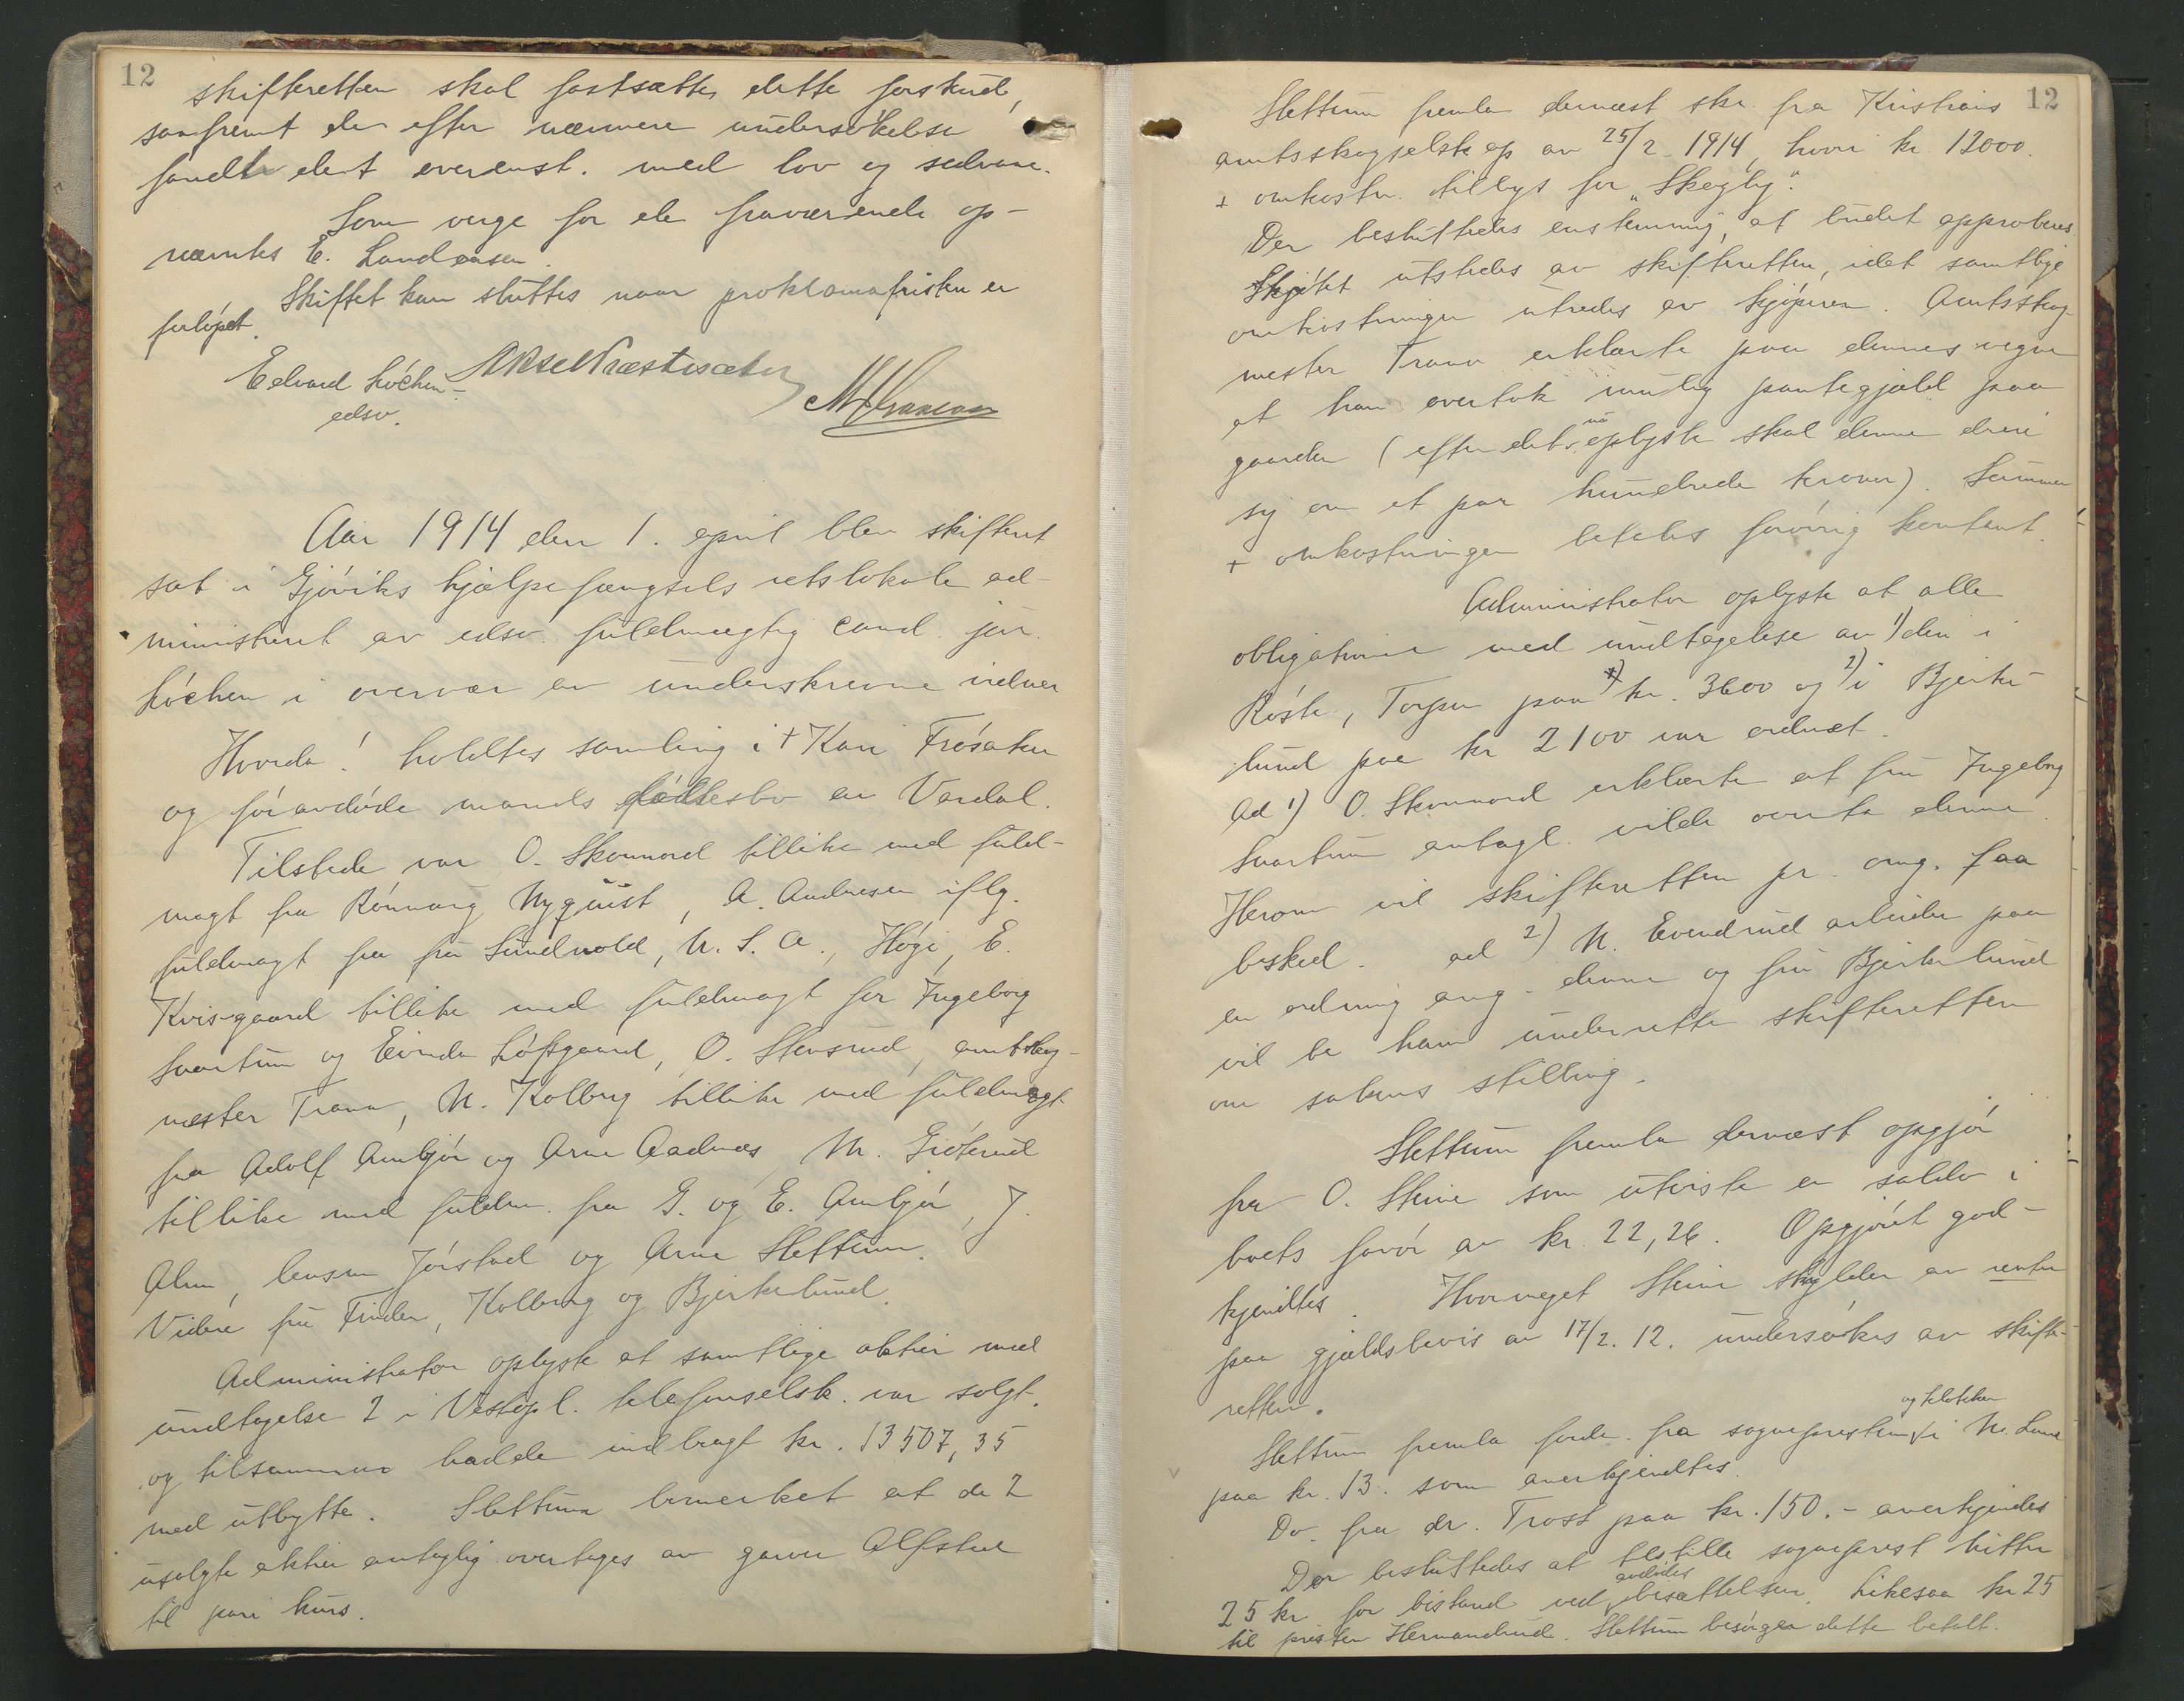 12
skifteretten skal fastsætte dette forskud,
saafremt den efter nærmere undersøkelse
fandt det overenst. med lov og sedvane.
Som verge for de fraværende op-
nævntes E. Landåsen.
Skiftet kan sluttes naar proklamafristen er
forløpet.
Edvard Løchen
edsv.
Aksel Præstesæter
Aar 1914 den 1. april blev skifteret
sat i Gjøviks hjælpefængsels retslokale ad-
ministreret av edsv. fuldmægtig cand. jur.
Løchen i overvær av underskrevne vidner
Hvorda! holdtes samling i + Kari Frøsaker
og føravdøde mands fællesbo av Vardal.
Tilstede var O. Skonnord tillike med fuld-
magt fra Rønnaug Nyquist, A. Andresen iflg.
fuldmagt fra fru Sundvold, U. S. A., Høgi, E.
Kvisgaard tillike med fuldmagt for Ingeborg
Svartum og Eivinda Løkgaard, O. Stensrud, amtskog-
mester Trana, N. Kolberg tillike med fuldmagt
fra Adolf Ambjør og Arne Aadnæs, M. Grøterud
tillike med fuldm. fra G. og E. Ambjør, J.
Alm, lensm Jørstad og Arne Slettum.
Videre fru Finden, Kolberg og Bjerkelund.
Administrator oplyste at samtlige aktier med
undtagelse 2 i Vestopl. telefonselsk. var solgt.
og tilsammen hadde indbragt kr. 13507,35
med utbytte. Slettum bemerket at de 2
usolgte aktier antagelig overtages av garver Alfstad
til pari kurs.
12
Slettum fremla dernæst skr. fra Kristians
amtsskogselskap av 25/2 1914, hvori kr. 12000.
+ omkostn. tilbys for "Skogly".
Der besluttedes enstemmig, at budet approberes.
Skjøtet utstedes av skifteretten, idet samtlige
omkostninger utredes av kjøperen. Amtsskog-
mester Trana erklærte paa dennes vegne
at han overtok mulig pantegjæld paa
gaarden (efter det nu oplyste skal denne dreie
sig om et par hundrede kroner). Summen
+ omkostninger betales forøvrig kontant.
Administrator oplyste at alle
obligationer med undtagelse av 1) den i
Røste, Torpa paa kr. 3600 og 2) i Bjerke-
lund paa kr 2100 var ordnet.
Ad 1) O. Skonnord erklærte at fru Ingeborg
Svartum antagl. vilde overta denne.
Herom vil skifteretten pr. omg. faa
besked. ad 2) N. Evendrud arbeider paa
en ordning ang. denne og fru Bjerkelund
vil be ham underrette skifteretten
om sakens stilling.
Slettum fremla dernæst opgjør
fra O. Steine som utviste en saldo i
boets favør av kr. 22,26. Opgjøret god-
kjendtes. Hvormeget Steine skylder av renter
paa gjældsbevis av 17/2. 12. undersøkes av skifte-
retten.
Slettum fremla fordr. fra sognepresten og klokker i N. Land
paa kr. 13. som anerkjendtes.
Do. fra dr. Trost paa kr. 150.- anerkjendes
Der besluttedes at tilstille sogneprest Lutter
25 kr. for bistand ved avdødes bisættelser. Likesaa kr 25
til presten Hermandrud. Slettum besørger dette betalt.